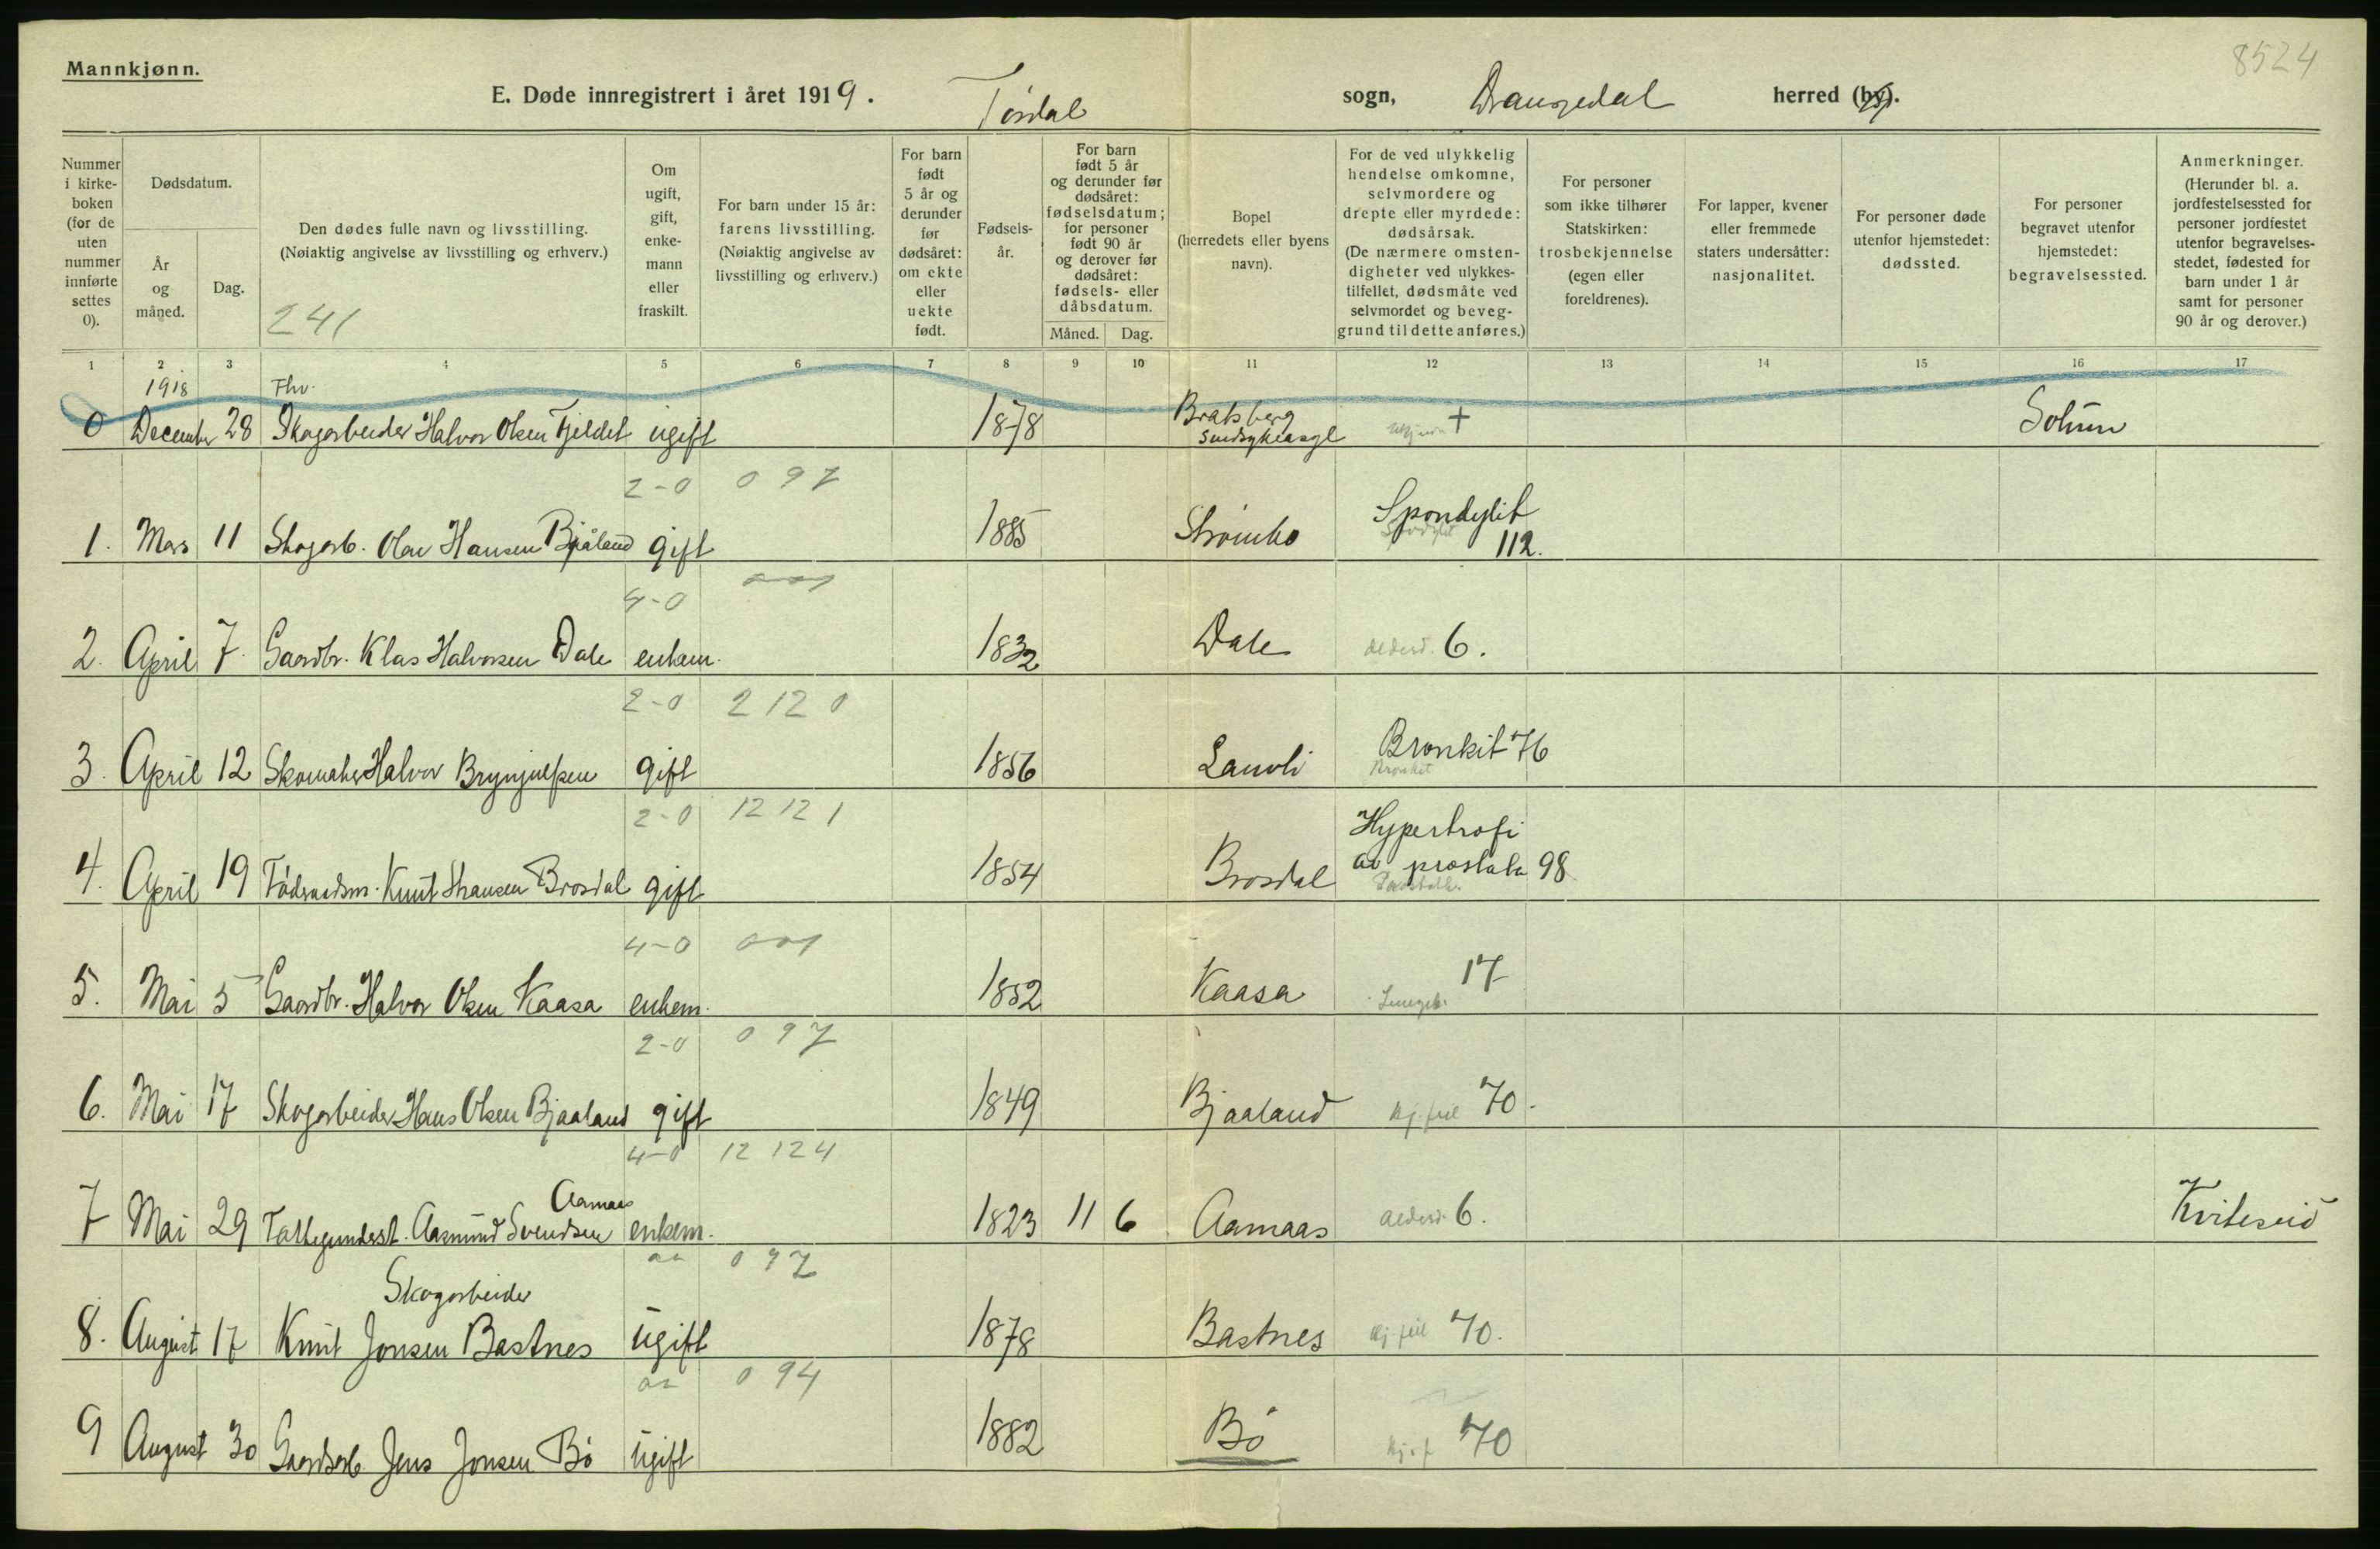 8524
Mannkjønn.
E. Døde innregistrert i året 1919. Tørdal sogn, Drangedal herred (by).
Nummer i kirkeboken (for de uten nummer innførte settes 0).
Dødsdatum.
År og måned.
Dag.
Den dødes fulle navn og livsstilling.
(Nøiaktig angivelse av livsstilling og erhverv.)
241
Om ugift, gift, enkemann eller fraskilt.
For barn under 15 år: farens livsstilling.
(Nøiaktig angivelse av livsstilling og erhverv.)
For barn født 5 år og derunder før dødsåret: om ekte eller uekte født.
Fødselsår.
For barn født 5 år og derunder før dødsåret: fødselsdatum; for personer født 90 år og derover før dødsåret: fødsels- eller dåbsdatum.
Måned. Dag.
Bopel (herredets eller byens navn).
For de ved ulykkelig hendelse omkomne, selvmordere og drepte eller myrdede: dødsårsak.
(De nærmere omstendigheter ved ulykkestilfellet, dødsmåte ved selvmordet og beveggrund til dette anføres.)
For personer som ikke tilhører Statskirken: trosbekjennelse (egen eller foreldrenes).
For lapper, kvener eller fremmede staters undersåtter: nasjonalitet.
For personer døde utenfor hjemstedet: dødssted.
For personer begravet utenfor hjemstedet: begravelsessted.
Anmerkninger.
(Herunder bl. a. jordfestelsessted for personer jordfestet utenfor begravelsesstedet, fødested for barn under 1 år samt for personer 90 år og derover.)
1 2 3 4 5 6 7 8 9 10 11 12 13 14 15 16 17
1918 Fhv.
0 December 28 Skogarbeider Halvor Olsen Fjeldet ugift 1878 Bratsberg sindsykeasyl + Solum
2-0 097
1. Mars 11 Skogarb. Olav Hansen Bjåland gift 1885 Strømbo Spondylit 112.
4-0 001
2. April 7. Gaardbr. Klas Halvorsen Dale enkem. 1832 Dale Aldersd. 6.
2-0 2120
3. April 12 Skomaker Halvor Brynjulfsen gift 1856 Lauvli Bronkit 76
Bronkit
2-0 12121
4. April 19 Føderaadsm. Knut Hansen Brosdal gift 1854 Brosdal Hypertrofi av prostata 98
4-0 001
5. Mai 5 Gaardbr. Halvor Olsen Kaasa enkem. 1852 Kaasa 17
2-0 097
6. Mai 17 Skogarbeider Hans Olsen Bjaaland gift 1849 Bjaaland Hj. feil 70.
4-0 12124
7 Mai 29 Aasmund Svendsen Aamaas enkem. 1823 11 6 Aamaas Aldersd. 6. Kviteseid
097
Skogarbeider
8. August 17 Knut Jonsen Bastnes ugift 1878 Bastnes Hj. feil 70.
094
9 August 30 Gaardsarb. Jens Jonsen Bø ugift 1882 Bø Hj. f 70